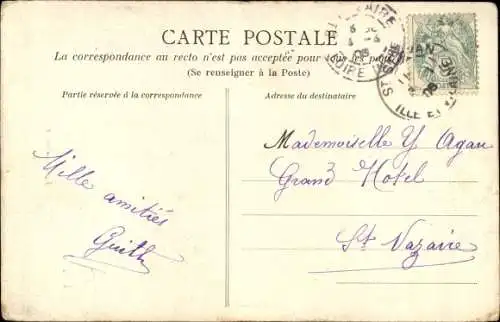 CARTE POSTALE
La correspondance au recto n'est pas acceptée pour tous les pays
(Se renseigner à la Poste)
Partie réservée à la correspondance
Adresse du destinataire
Mille amitiés
Mademoiselle Y Agan
Grand Hotel
St Nazaire
ILLE ET